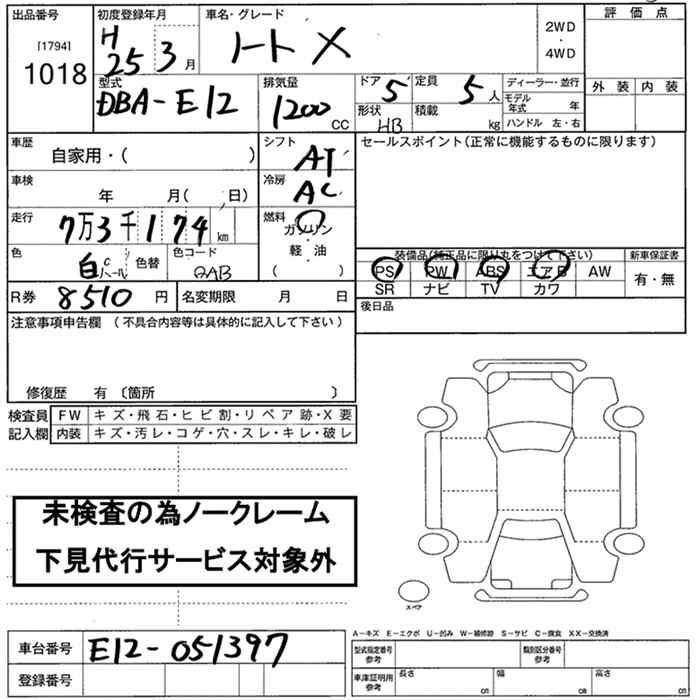 出品番号 初度登録年月 車名・グレード 2WD・4WD 評価点
[1794] H 25 3月 ノート X
1018 型式 排気量 ドア 5 定員 5人 ディーラー・並行 外装 内装
DBA-E12 1200cc 形状 HB 積載 kg モデル年式 年
ハンドル 左・右
車歴 シフト セールスポイント(正常に機能するものに限ります)
自家用・( ) AT
車検 冷房
年 月( 日) AC
走行 燃料
7万3千174km ガソリン
軽・油
( )
色 色替 色コード 装備品(純正品に限り丸をつけて下さい) 新車保証書
白 Cパール QAB PS PW ABS エアB AW 有・無
SR ナビ TV カワ
R券 8510円 名変期限 月 日 後日品
注意事項申告欄 (不具合内容等は具体的に記入して下さい)
修復歴 有 〔箇所 〕
検査員 FW キズ・飛石・ヒビ割・リペア跡・X要
記入欄 内装 キズ・汚レ・コゲ・穴・スレ・キレ・破レ
未検査の為ノークレーム
下見代行サービス対象外
スペア
A-キズ E-エクボ U-凹み W-補修跡 S-サビ C-腐食 XX-交換済
車台番号 E12-051397 型式指定番号 参考 類別区分番号 参考
登録番号 車庫証明用 参考 長さ cm 幅 cm 高さ cm